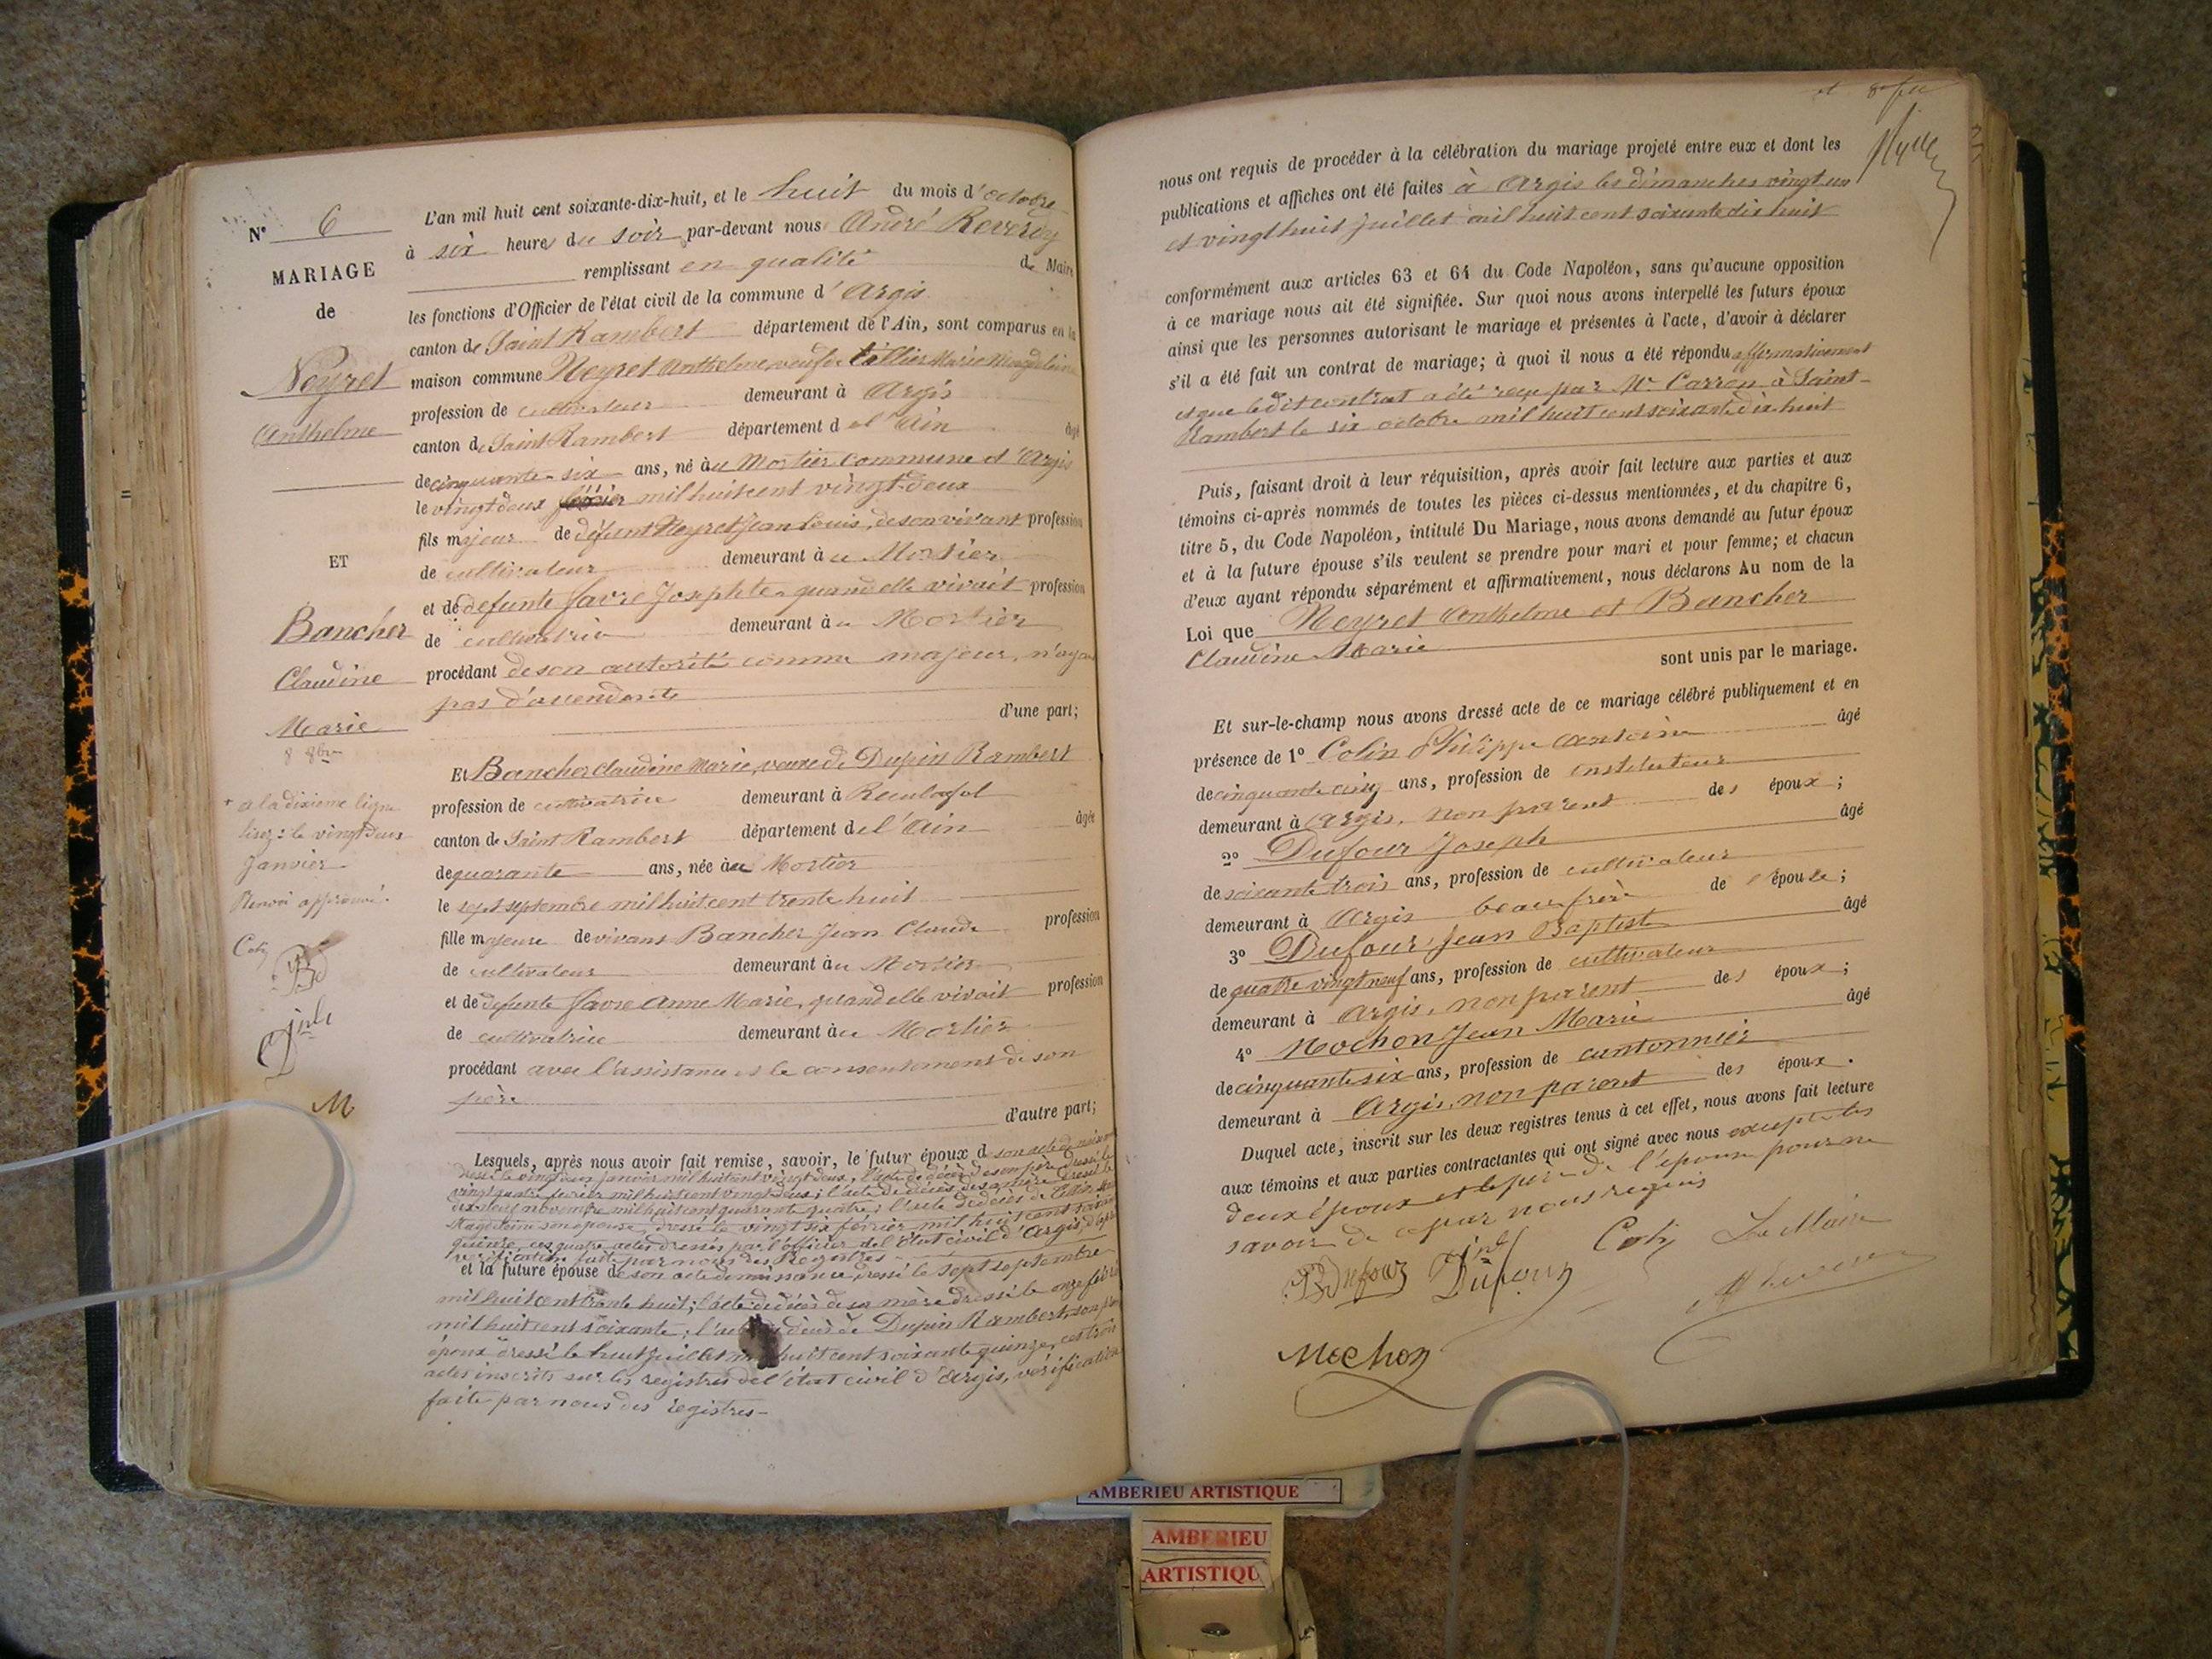 N° 6
MARIAGE
de
Neyret
Anthelme
ET
Bancher
Claudine
Marie
8 8bre
+ a la dixième ligne
lisez : le vingt deux
Janvier
Renvoi approuvé.
L'an mil huit cent soixante-dix-huit, et le huit du mois d'octobre
à six heures du soir par-devant nous André Reverdy
remplissant en qualité de Maire
les fonctions d'Officier de l'état civil de la commune d'Argis
canton de Saint Rambert département de l'Ain, sont comparus en la
maison commune Neyret Anthelme, veuf de Tillier Marie Magdeleine
profession de cultivateur demeurant à Argis
canton de Saint Rambert département de l'Ain âgé
de cinquante-six ans, né au Mortier commune d'Argis
le vingt deux mil huit cent vingt-deux
fils majeur de défunt Neyret Jean Louis, de son vivant profession
de cultivateur demeurant au Mortier
et de défunte Favre Josephte, quand elle vivait profession
de cultivatrice demeurant au Mortier
procédant de son autorité comme majeur, n'ayant
pas d'ascendants
d'une part;
Et Bancher Claudine Marie, veuve de Dupin Rambert
profession de cultivatrice demeurant à Reculafol
canton de Saint Rambert département de l'Ain âgée
de quarante ans, née au Mortier
le sept septembre mil huit cent trente huit
fille majeure de vivant Bancher Jean Claude profession
de cultivateur demeurant au Mortier
et de défunte Favre Anne Marie, quand elle vivait profession
de cultivatrice demeurant au Mortier
procédant avec l'assistance et le consentement de son
père
d'autre part;
Lesquels, après nous avoir fait remise, savoir, le futur époux de son acte de naissance
dressé le vingt deux janvier mil huit cent vingt deux, l'acte de décès de son père dressé le
vingt quatre février mil huit cent vingt deux; l'acte de décès de sa mère dressé le
dix neuf novembre mil huit cent quarante quatre; l'acte de décès de Tillier Marie
Magdeleine son épouse, dressé le vingt six février mil huit cent soixante
quinze, ces quatre actes dressés par l'officier de l'état civil d'Argis, d'après
vérification faite par nous des Registres
et la future épouse de son acte de naissance, dressé le sept septembre
mil huit cent trente huit; l'acte de décès de sa mère dressé le onze février
mil huit cent soixante; l'acte de décès de Dupin Rambert, son premier
époux dressé le huit juillet mil huit cent soixante quinze, ces trois
actes inscrits sur les registres de l'état civil d'Argis, vérification
faite par nous des registres
nous ont requis de procéder à la célébration du mariage projeté entre eux et dont les
publications et affiches ont été faites à Argis les dimanches vingt un
et vingt huit juillet mil huit cent soixante dix huit
conformément aux articles 63 et 64 du Code Napoléon, sans qu'aucune opposition
à ce mariage nous ait été signifiée. Sur quoi nous avons interpellé les futurs époux
ainsi que les personnes autorisant le mariage et présentes à l'acte, d'avoir à déclarer
s'il a été fait un contrat de mariage; à quoi il nous a été répondu affirmativement
et que ledit contrat a été reçu par Me Carron à Saint-
Rambert le six octobre mil huit cent soixante dix huit
Puis, faisant droit à leur réquisition, après avoir fait lecture aux parties et aux
témoins ci-après nommés de toutes les pièces ci-dessus mentionnées, et du chapitre 6,
titre 5, du Code Napoléon, intitulé Du Mariage, nous avons demandé au futur époux
et à la future épouse s'ils veulent se prendre pour mari et pour femme; et chacun
d'eux ayant répondu séparément et affirmativement, nous déclarons Au nom de la
Loi que Neyret Anthelme et Bancher
Claudine Marie sont unis par le mariage.
Et sur-le-champ nous avons dressé acte de ce mariage célébré publiquement et en
présence de 1° Colin Philippe Antoine âgé
de cinquante cinq ans, profession de instituteur
demeurant à Argis, non parent des époux;
2° Dufour Joseph âgé
de soixante trois ans, profession de cultivateur
demeurant à Argis beau frère de l'épouse;
3° Dufour Jean Baptist âgé
de quatre vingt neuf ans, profession de cultivateur
demeurant à Argis, non parent des époux;
4° Mochon Jean Marie âgé
de cinquante six ans, profession de cantonnier
demeurant à Argis, non parent des époux.
Duquel acte, inscrit sur les deux registres tenus à cet effet, nous avons fait lecture
aux témoins et aux parties contractantes qui ont signé avec nous excepté les
deux époux et le père de l'épouse pour ne
savoir de ce par nous requis
B Dufour Jph Dufour Colin Le Maire
Mochon
AMBERIEU ARTISTIQUE
AMBERIEU
ARTISTIQU